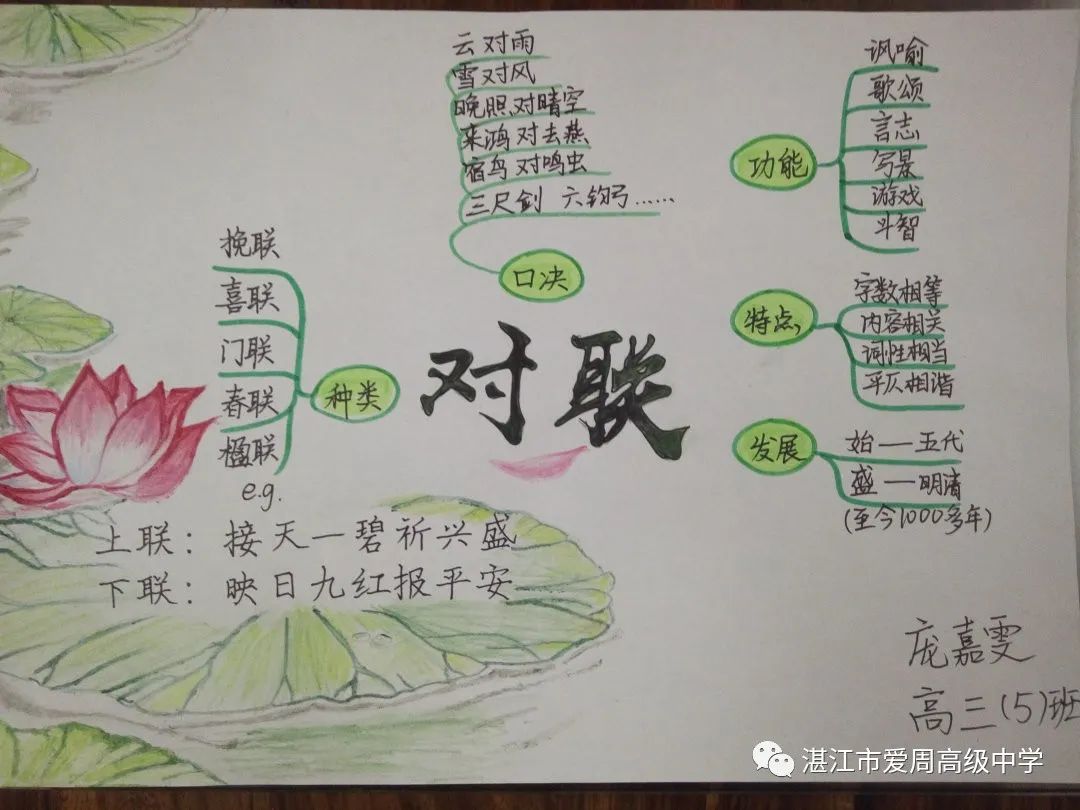 云对雨
雪对风
晚照对晴空
来鸿对去燕
宿鸟对鸣虫
三尺剑 六钧弓……
口决
讽喻
歌颂
言志
写景
游戏
斗智
功能
挽联
喜联
门联
春联
楹联
种类
对联
字数相等
内容相关
词性相当
平仄相谐
特点
发展
始一五代
盛一明清
(至今1000多年)
e.g.
上联：接天一碧祈兴盛
下联：映日九红报平安
庞嘉雯
高三(5)班
湛江市爱周高级中学